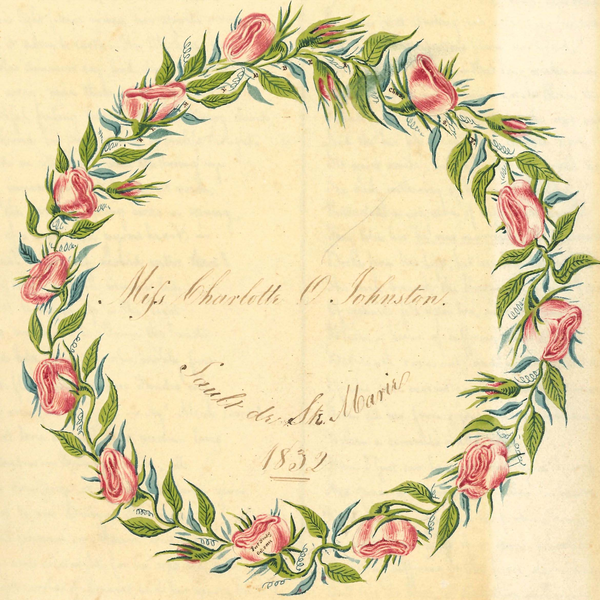 Miſs Charlotte O. Johnston.
Sault de Ste. Marie
1832